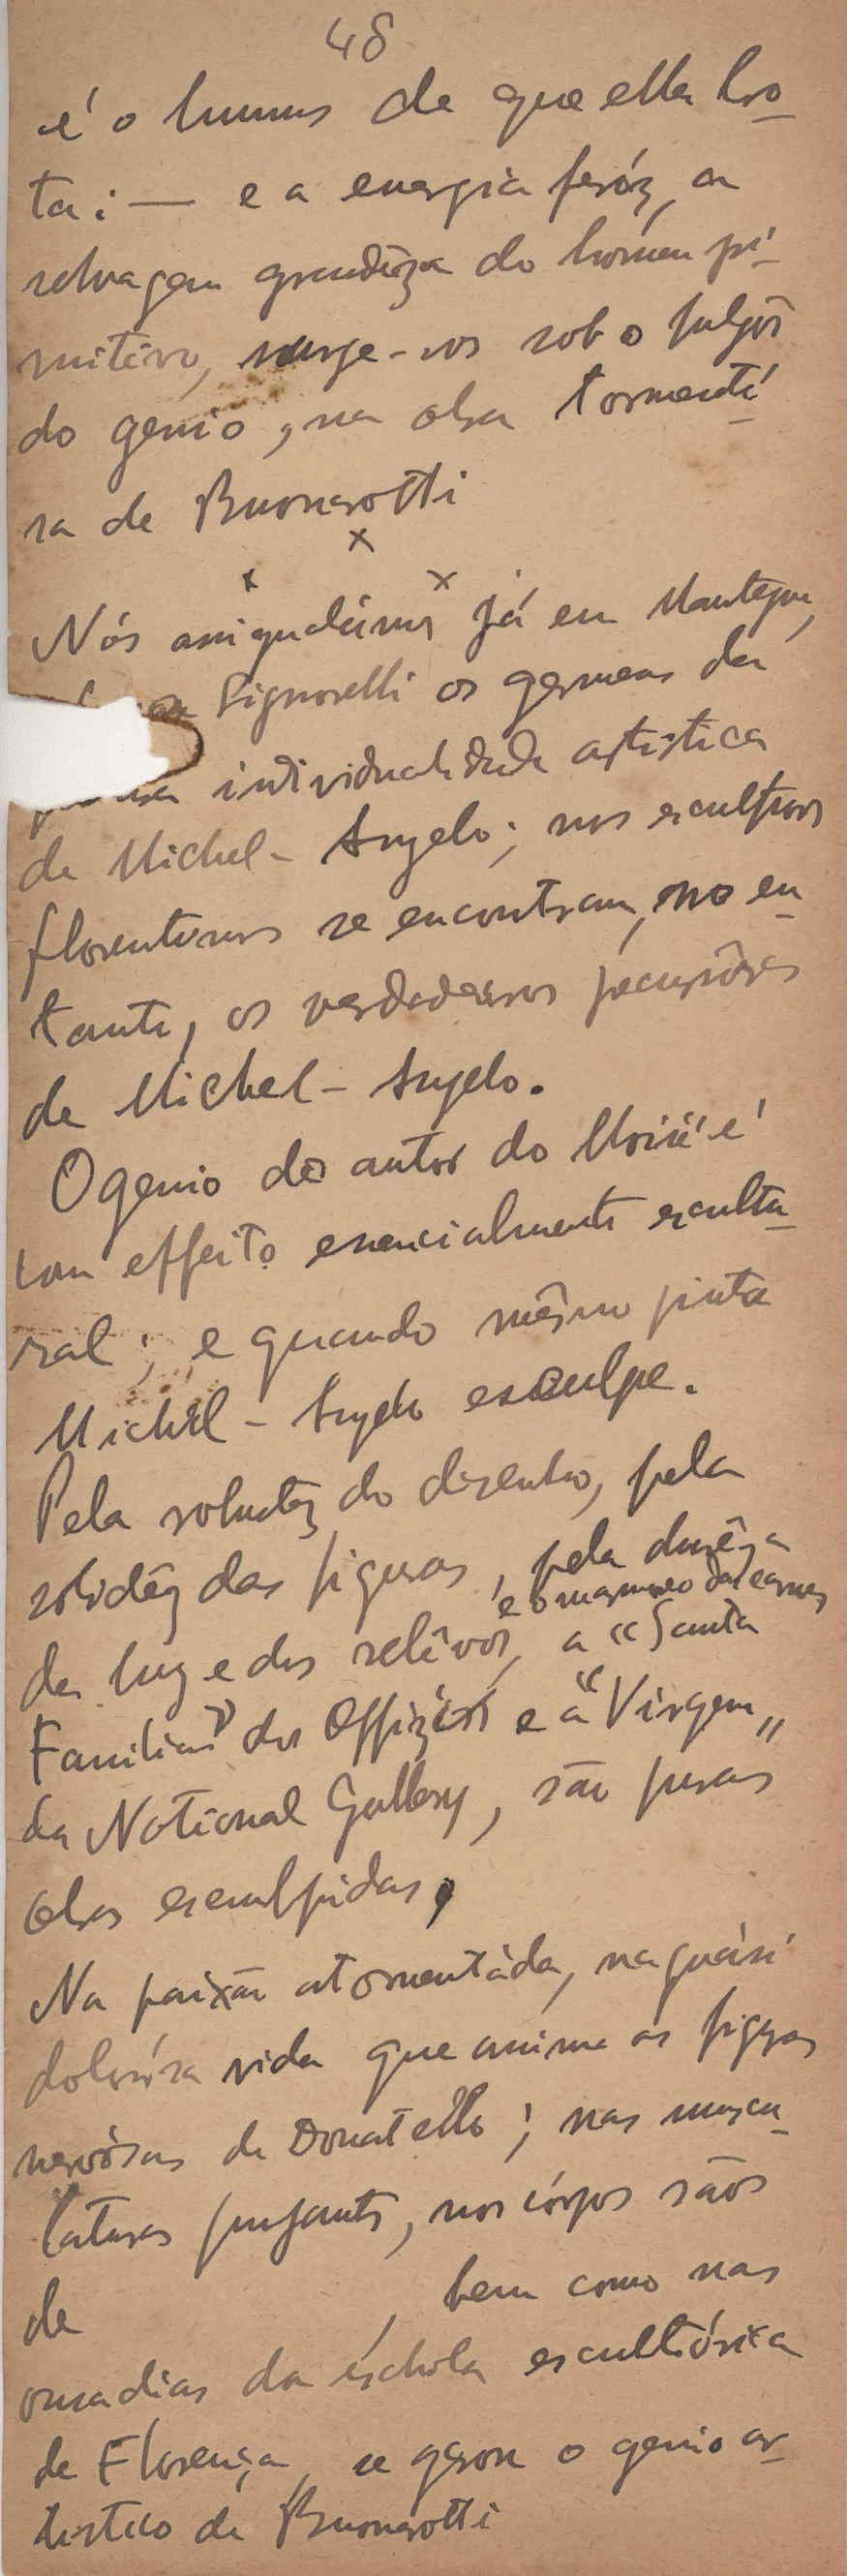 48
é o humus de que ella bro-
ta: — e a energia feróz, a
selvagem grandêza do hómem pri-
mitivo, surge-nos sob o fulgôr
do genio, na obra tormentó-
sa de Buonarotti
x
x x
Nós assignalámos já em Mantegna,
Signorelli os germens da
individualidade artistica
de Michel-Angelo; nos escultores
florentinos se encontram, no en-
tanto, os verdadeiros precursôres
de Michel-Angelo.
O genio do autor do Moisé é
com effeito essencialmente escultu-
ral; e quando mêsmo pinta
Michel-Angelo esculpe.
Pela do dezenho, pela
solidêz das figuras, pela durêza
e o marmoreo das carnes
da luz e dos relêvos, a "Santa
Familia" dos Offizios e a "Virgem"
da National Gallery, são puras
obras esculpidas,
Na paixão atormentáda, na quási
dolorósa vida que anima as figuras
nervósas de Donatello; nas muscu-
laturas pujantes, nos córpos sãos
de , bem como nas
ousadias da éschola escultórica
de Florença, se gerou o genio ar-
tistico de Buonarotti